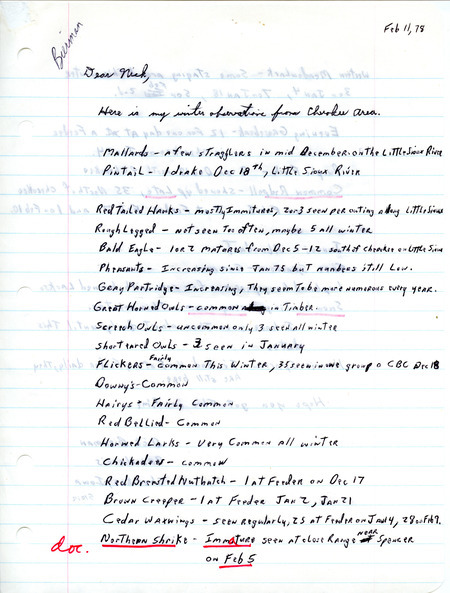 Feb 11, 78
Bierman
Dear Nick,
Here is my winter observations from Cherokee area.
Mallards - a few stragglers in mid December - on the Little Sioux River
Pintail - 1 drake Dec 18th, Little Sioux River
Red Tailed Hawks - mostly Immitures, 2 or 3 seen per outing along Little Sioux
Rough Legged - not seen too often, maybe 5 all winter
Bald Eagle - 1 or 2 matores from Dec 5-12 south of Cherokee on Little Sioux
Pheasants - Increasing since Jan 75 but numbers still Low.
Gray Partridge - Increasing, They seem to be more numerous every year.
Great Horned Owls - common in Timber.
Screech Owls - uncommon only 3 seen all winter
Short eared Owls - 3 seen in January
Flickers - Fairly common This Winter, 35 seen in one group on CBC Dec 18
Downy's - Common
Hairys - Fairly Common
Red Bellied - Common
Horned Larks - Very Common all winter
Chickadees - common
Red Breasted Nuthatch - 1 at Feeder on Dec 17
Brown Creeper - 1 at Feeder Jan 2, Jan 21
Cedar Waxwings - seen regularly, 25 at Feeder on Jan 4, 28 on Feb 9.
doc. Northern Shrike - Immature seen at close Range near Spencer
on Feb 5